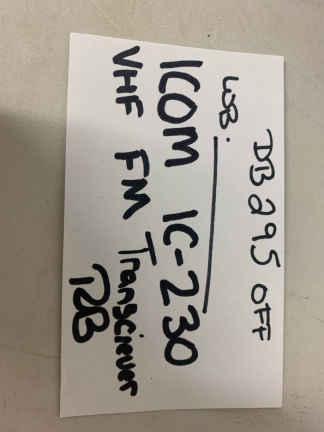 DB295 OFF
WB.
ICOM IC-230
VHF FM Transciever
RB